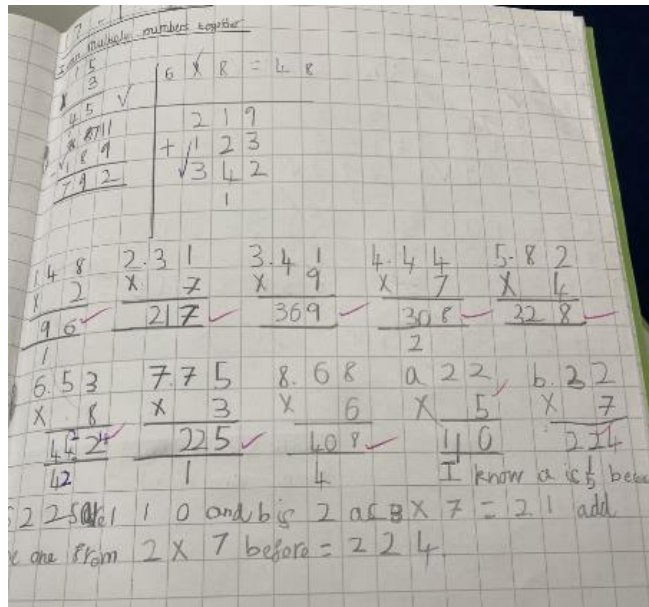 I can multiply numbers together
1 5
X 3
4 5 ✓
6 X 8 = 4 8
2 1 9
+ 1 2 3
3 4 2
1
- 1 8 9
7 9 2
1 4 8
X 2
9 6 ✓
1
2. 3 1
X 7
2 1 7 ✓
3. 4 1
X 9
3 6 9 ✓
4. 4 4
X 7
3 0 8 ✓
2
5. 8 2
X 4
3 2 8 ✓
6. 5 3
X 8
4 2 4 ✓
4 2
7. 7 5
X 3
2 2 5 ✓
1
8. 6 8
X 6
4 0 8 ✓
4
a 2 2
X 5
1 1 0
b. 3 2
X 7
2 2 4
I know a is
2 2 5 1 1 0 and b is 2 as 3 X 7 = 2 1 add
one from 2 X 7 before = 2 2 4.